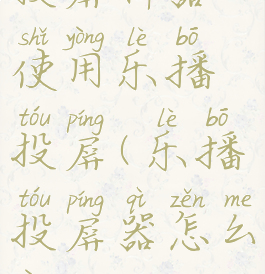 shǐ yòng lè bō
使用乐播
tóu píng lè bō
投屏(乐播
tóu píng qì zěn me
投屏器怎么